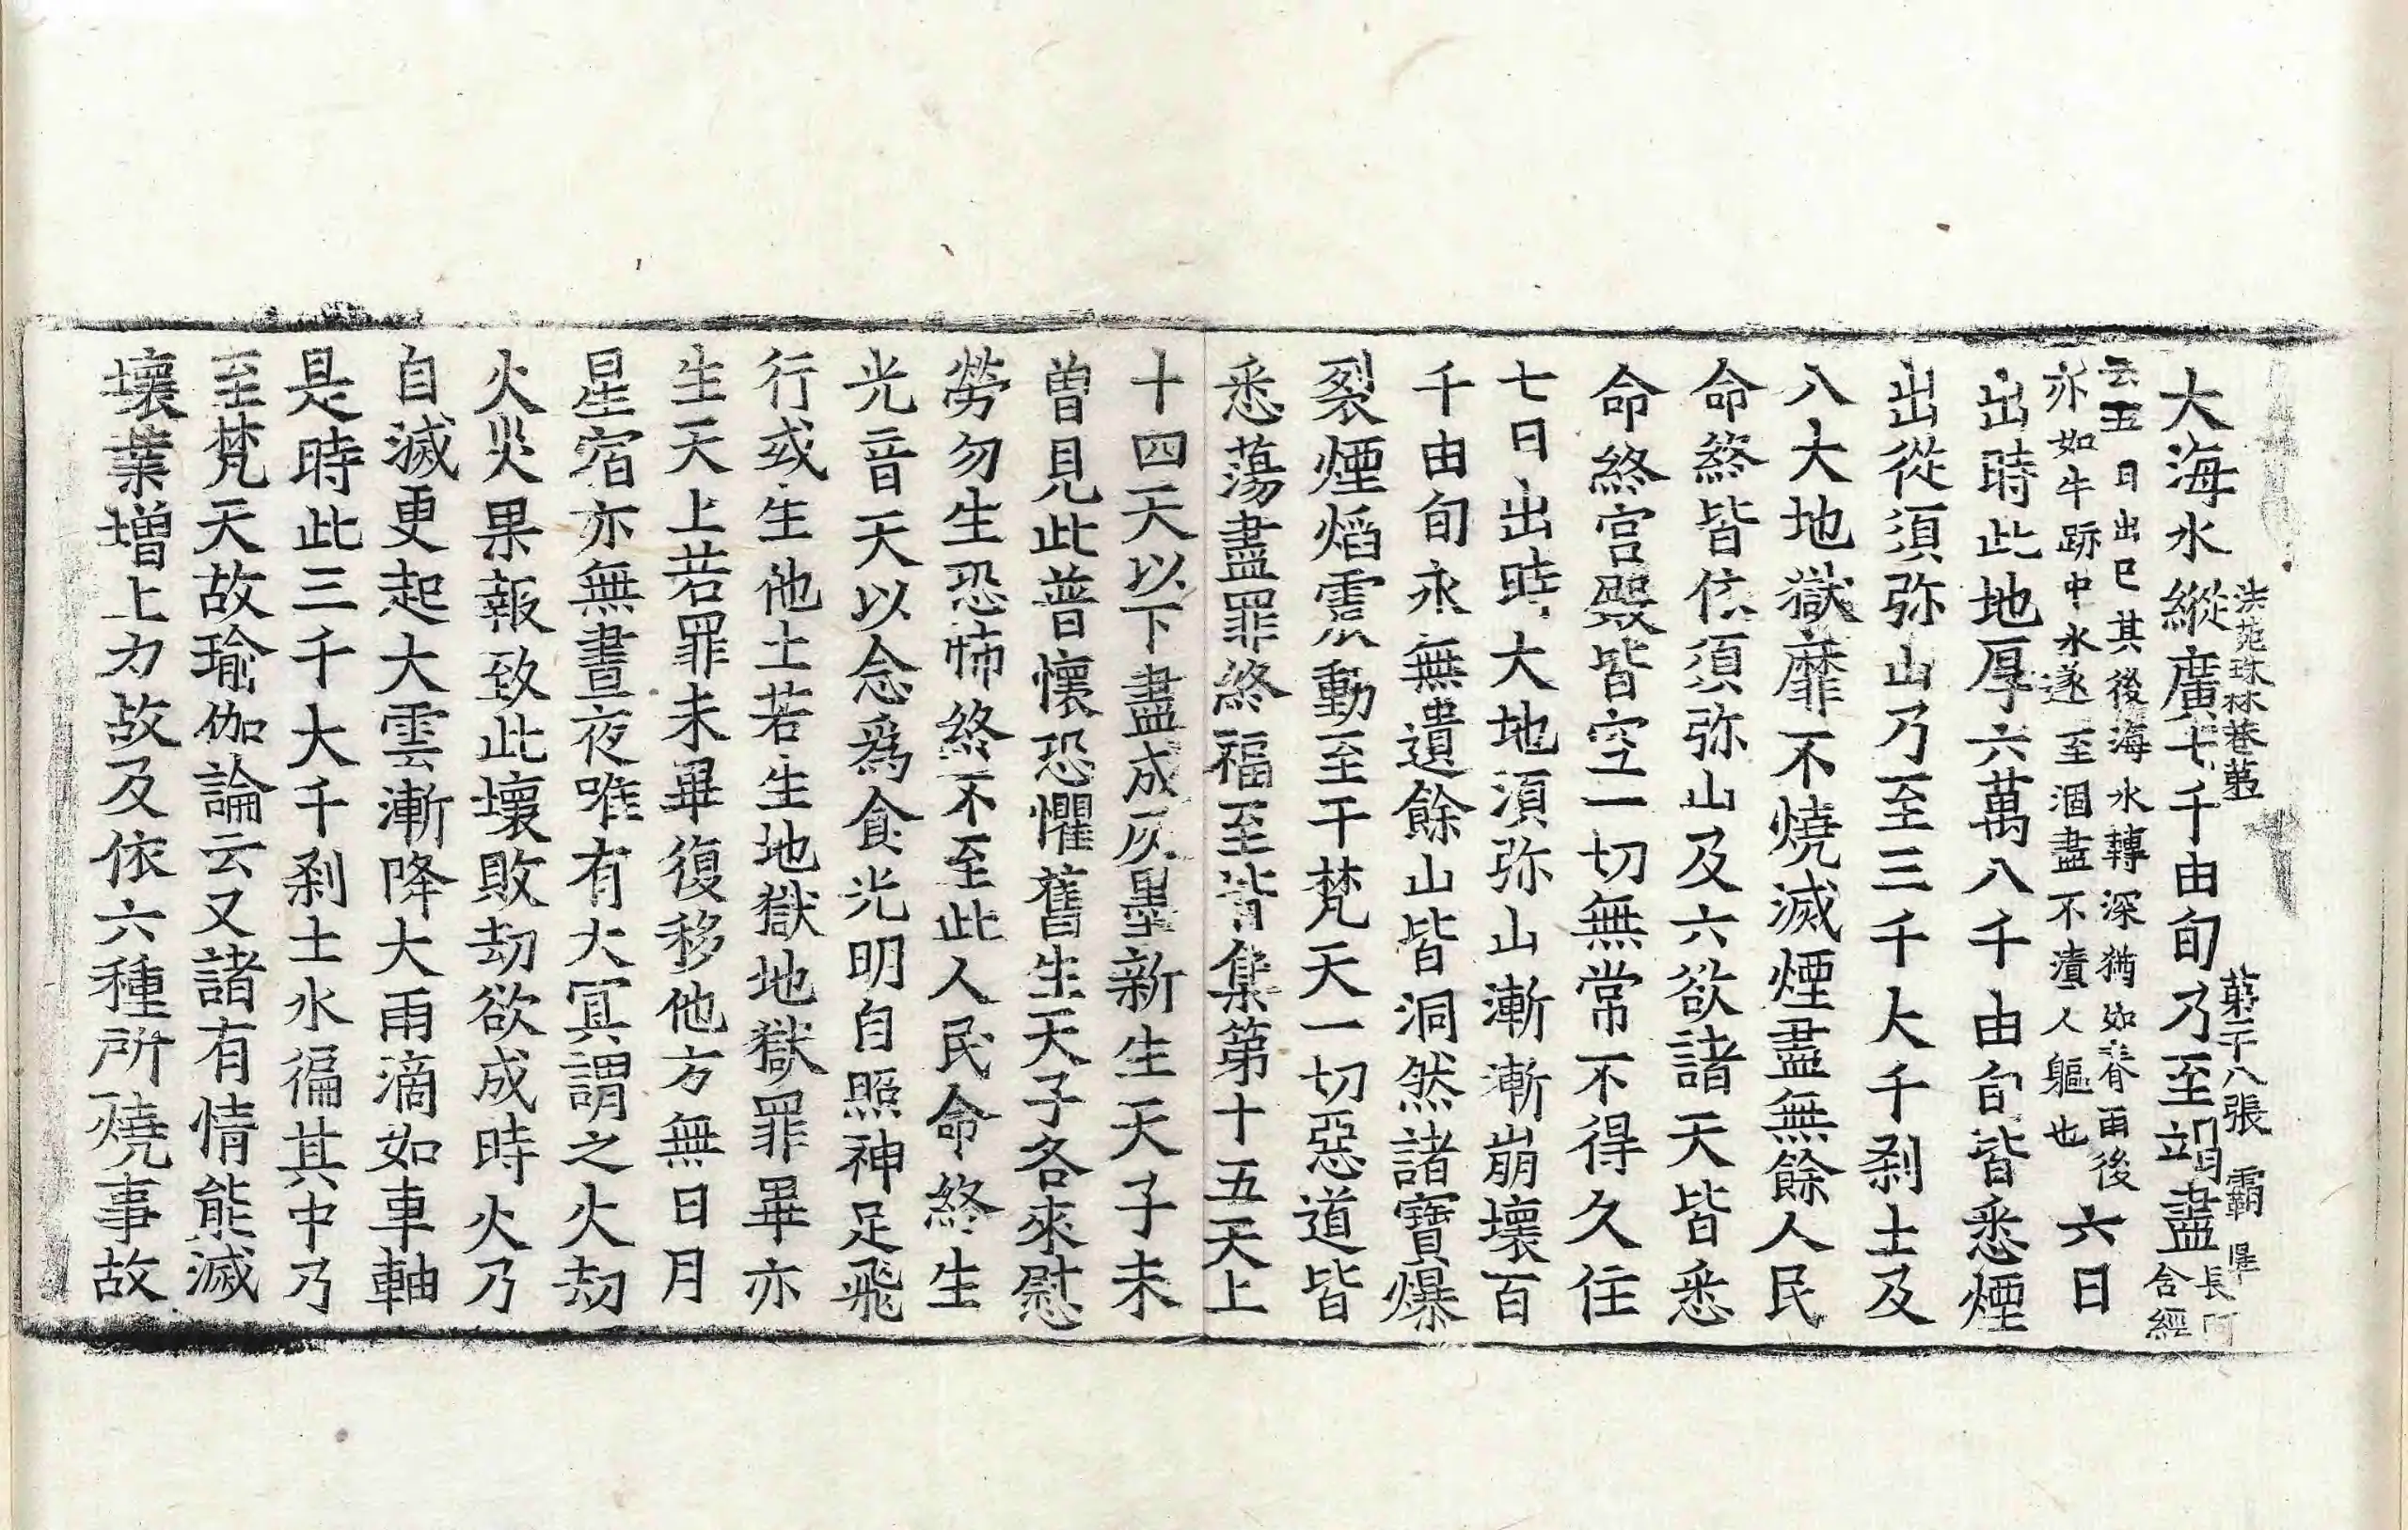 法苑珠林卷苐一 苐二十八張 覇
大海水縱廣七千由旬乃至竭盡長阿含經
云五日出已其後海水轉深猶如春雨後
亦如牛跡中水遂至涸盡不漬人軀也六日
出時此地厚六萬八千由旬皆悉煙
出從須弥山乃至三千大千剎土及
八大地獄靡不燒滅煙盡無餘人民
命終皆依須弥山及六欲諸天皆悉
命終宮殿皆空一切無常不得久住
七日出時大地須弥山漸漸崩壞百
千由旬永無遺餘山皆洞然諸寶爆
裂煙焰震動至于梵天一切惡道皆
悉蕩盡罪終福至皆集第十五天上
十四天以下盡成灰墨新生天子未
曾見此普懷恐懼舊生天子各來慰
勞勿生恐怖終不至此人民命終生
光音天以念爲食光明自照神足飛
行或生他土若生地獄地獄罪畢亦
生天上若罪未畢復移他方無日月
星宿亦無晝夜唯有大冥謂之火劫
火災果報致此壞敗劫欲成時火乃
自滅更起大雲漸降大雨滴如車軸
是時此三千大千剎土水徧其中乃
至梵天故瑜伽論云又諸有情能滅
壞業增上力故及依六種所燒事故